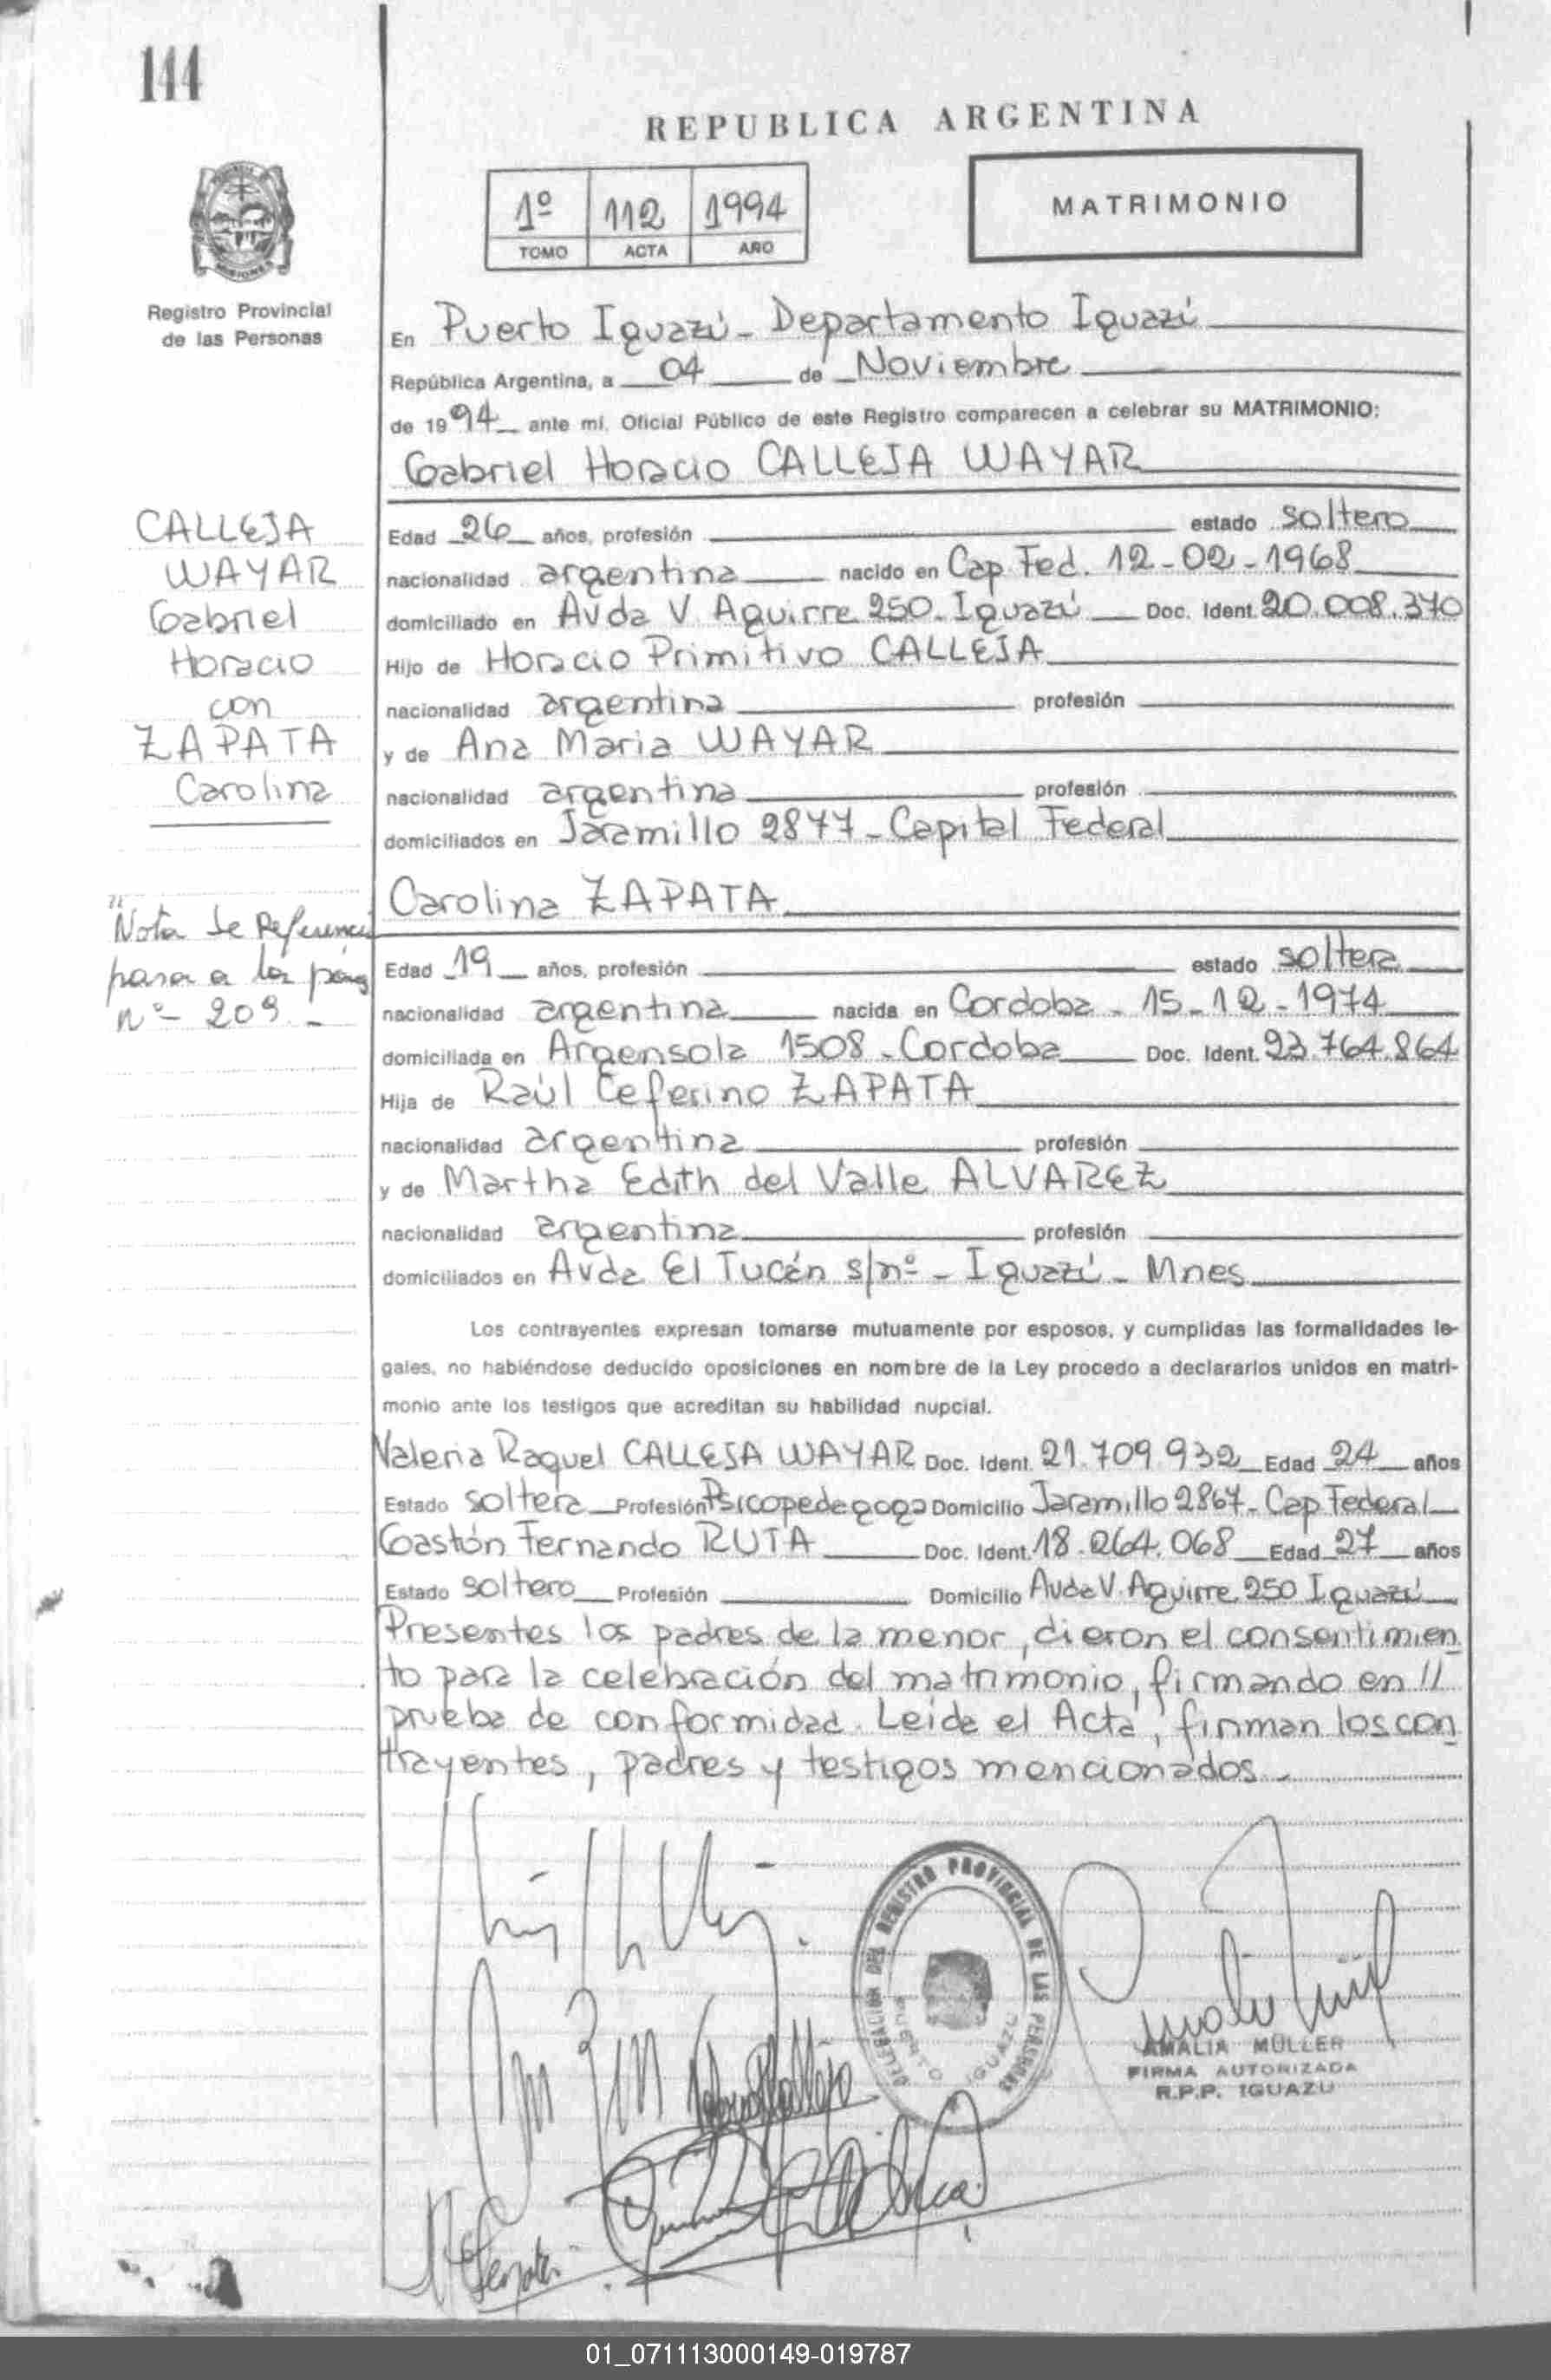 144
REPUBLICA ARGENTINA
1º 112 1994
TOMO ACTA AÑO
MATRIMONIO
MISIONES
Registro Provincial
de las Personas
En Puerto Iguazú - Departamento Iguazú
República Argentina, a 04 de Noviembre
de 1994 ante mí, Oficial Público de este Registro comparecen a celebrar su MATRIMONIO:
Gabriel Horacio CALLEJA WAYAR
CALLEJA
WAYAR
Gabriel
Horacio
con
ZAPATA
Carolina
Edad 26 años, profesión estado soltero
nacionalidad argentina nacido en Cap Fed. 12-02-1968
domiciliado en Avda V. Aguirre 250-Iguazú Doc. Ident. 20.008.370
Hijo de Horacio Primitivo CALLEJA
nacionalidad argentina profesión
y de Ana Maria WAYAR
nacionalidad argentina profesión
domiciliados en Jaramillo 2877-Capital Federal
"Nota de Referencia
pasa a la pág
nº 209 -
Carolina ZAPATA
Edad 19 años, profesión estado soltera
nacionalidad argentina nacida en Cordoba - 15-12-1974
domiciliada en Argensola 1508-Cordoba Doc. Ident. 23.764.864
Hija de Raúl Ceferino ZAPATA
nacionalidad argentina profesión
y de Martha Edith del Valle ALVAREZ
nacionalidad argentina profesión
domiciliados en Avda El Tucán s/nº - Iguazú - Mnes
Los contrayentes expresan tomarse mutuamente por esposos, y cumplidas las formalidades le-
gales, no habiéndose deducido oposiciones en nombre de la Ley procedo a declararlos unidos en matri-
monio ante los testigos que acreditan su habilidad nupcial.
Valeria Raquel CALLEJA WAYAR Doc. Ident. 21.709.932 Edad 24 años
Estado soltera Profesión Psicopedagoga Domicilio Jaramillo 2867-Cap Federal
Gastón Fernando RUTA Doc. Ident. 18.264.068 Edad 27 años
Estado soltero Profesión Domicilio Avda V. Aguirre 250 Iguazú
Presentes los padres de la menor, dieron el consentimien
to para la celebración del matrimonio, firmando en //
prueba de conformidad. Leida el Acta, firman los con
trayentes, padres y testigos mencionados.-
DELEGACION DEL REGISTRO PROVINCIAL DE LAS PERSONAS
PUERTO IGUAZU
AMALIA MÜLLER
FIRMA AUTORIZADA
R.P.P. IGUAZU
01_071113000149-019787